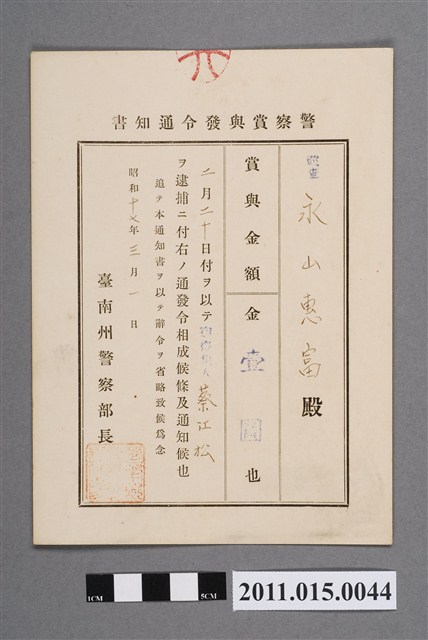 警察賞與發令通知書
巡査 永山惠富殿
賞與金額 金壹圓也
二月二十日付ヲ以テ 蔡江松
ヲ逮捕ニ付右ノ通發令相成候條及通知候也
追テ本通知書ヲ以テ辭令ヲ省略致候爲念
昭和十七年三月一日
臺南州警察部長
1CM 5CM
2011.015.0044